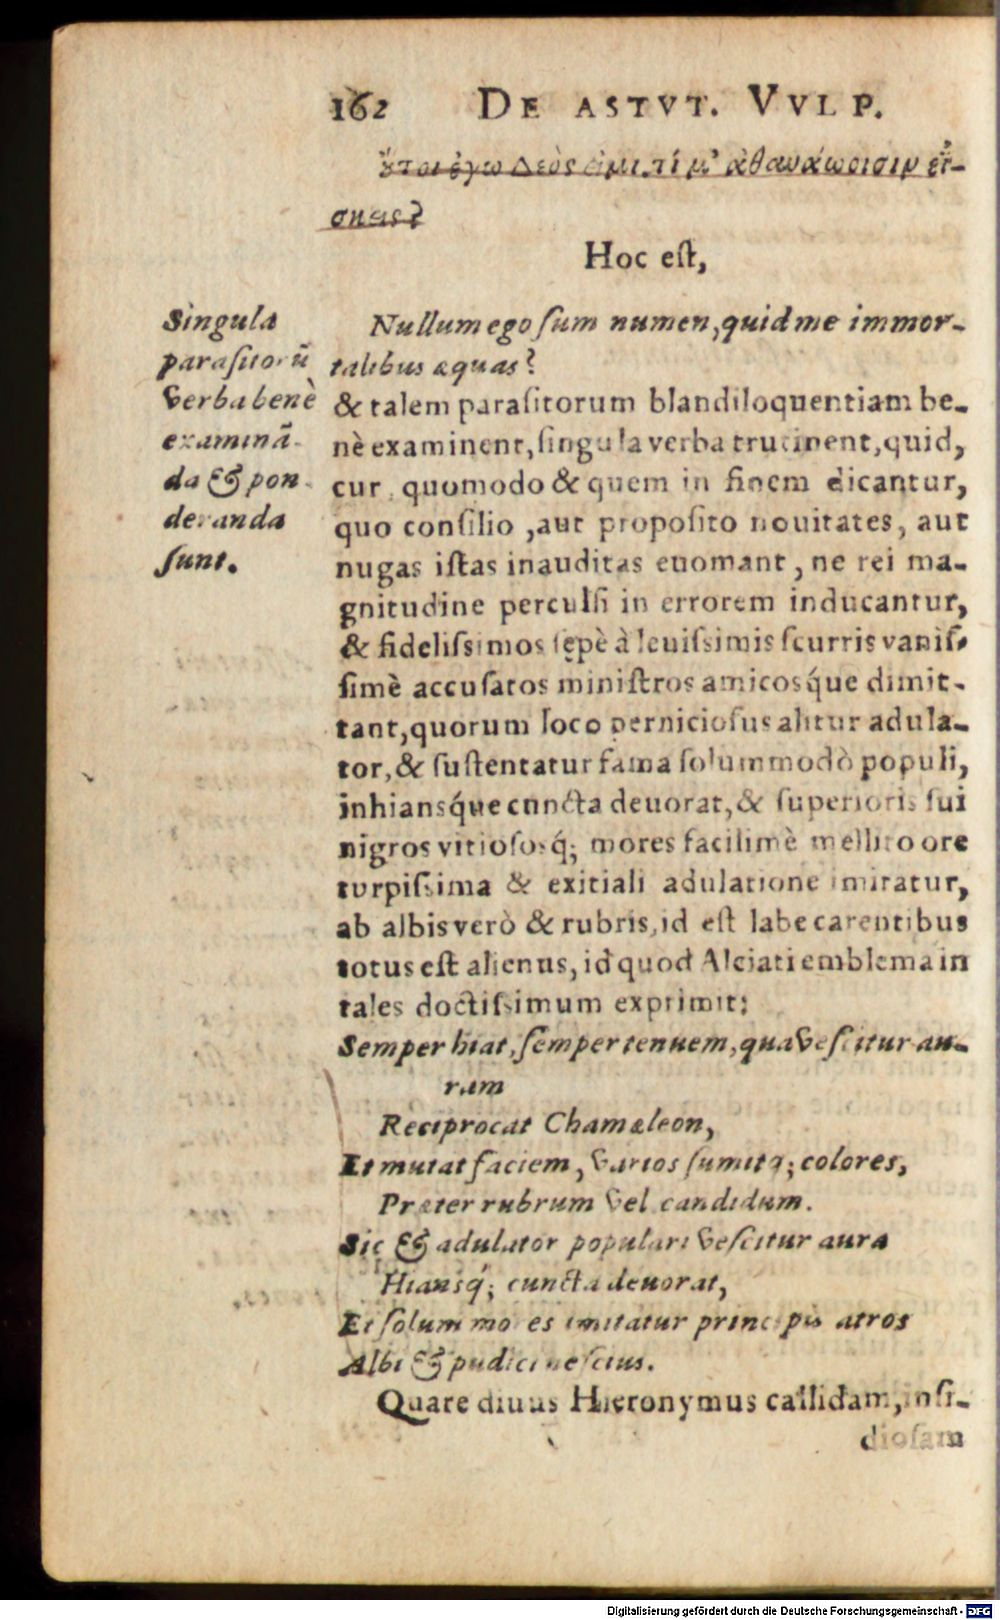 162 DE ASTVT. VVLP.
Hoc eſt,
Nullum ego ſum numen, quid me immor-
talibus æquas?
& talem paraſitorum blandiloquentiam be-
nè examinent, ſingula verba trutinent, quid,
cur, quomodo & quem in finem dicantur,
quo conſilio, aut propoſito nouitates, aut
nugas iſtas inauditas euomant, ne rei ma-
gnitudine perculſi in errorem inducantur,
& fideliſsimos ſępè à leuiſsimis ſcurris vaniſ-
ſimè accuſatos miniſtros amicosq́ue dimit-
tant, quorum loco pernicioſus alitur adula-
tor, & ſuſtentatur fama ſolummodò populi,
inhiansq́ue cuncta deuorat, & ſuperioris ſui
nigros vitioſosq́; mores facilimè mellito ore
turpiſsima & exitiali adulatione imitatur,
ab albis verò & rubris, id eſt labe carentibus
totus eſt alienus, id quod Alciati emblema in
tales doctiſsimum exprimit:
Semper hiat, ſemper tenuem, qua veſcitur au-
ram
Reciprocat Chamæleon,
Et mutat faciem, varios ſumitq; colores,
Præter rubrum vel candidum.
Sic & adulator populari veſcitur aura
Hiansq́; cuncta deuorat,
Et ſolum mores imitatur principis atros
Albi & pudici neſcius.
Quare diuus Hieronymus callidam, inſi-
dioſam
Singula
paraſitorū
verba benè
examinā-
da & pon-
deranda
ſunt.
Digitalisierung gefördert durch die Deutsche Forschungsgemeinschaft - DFG